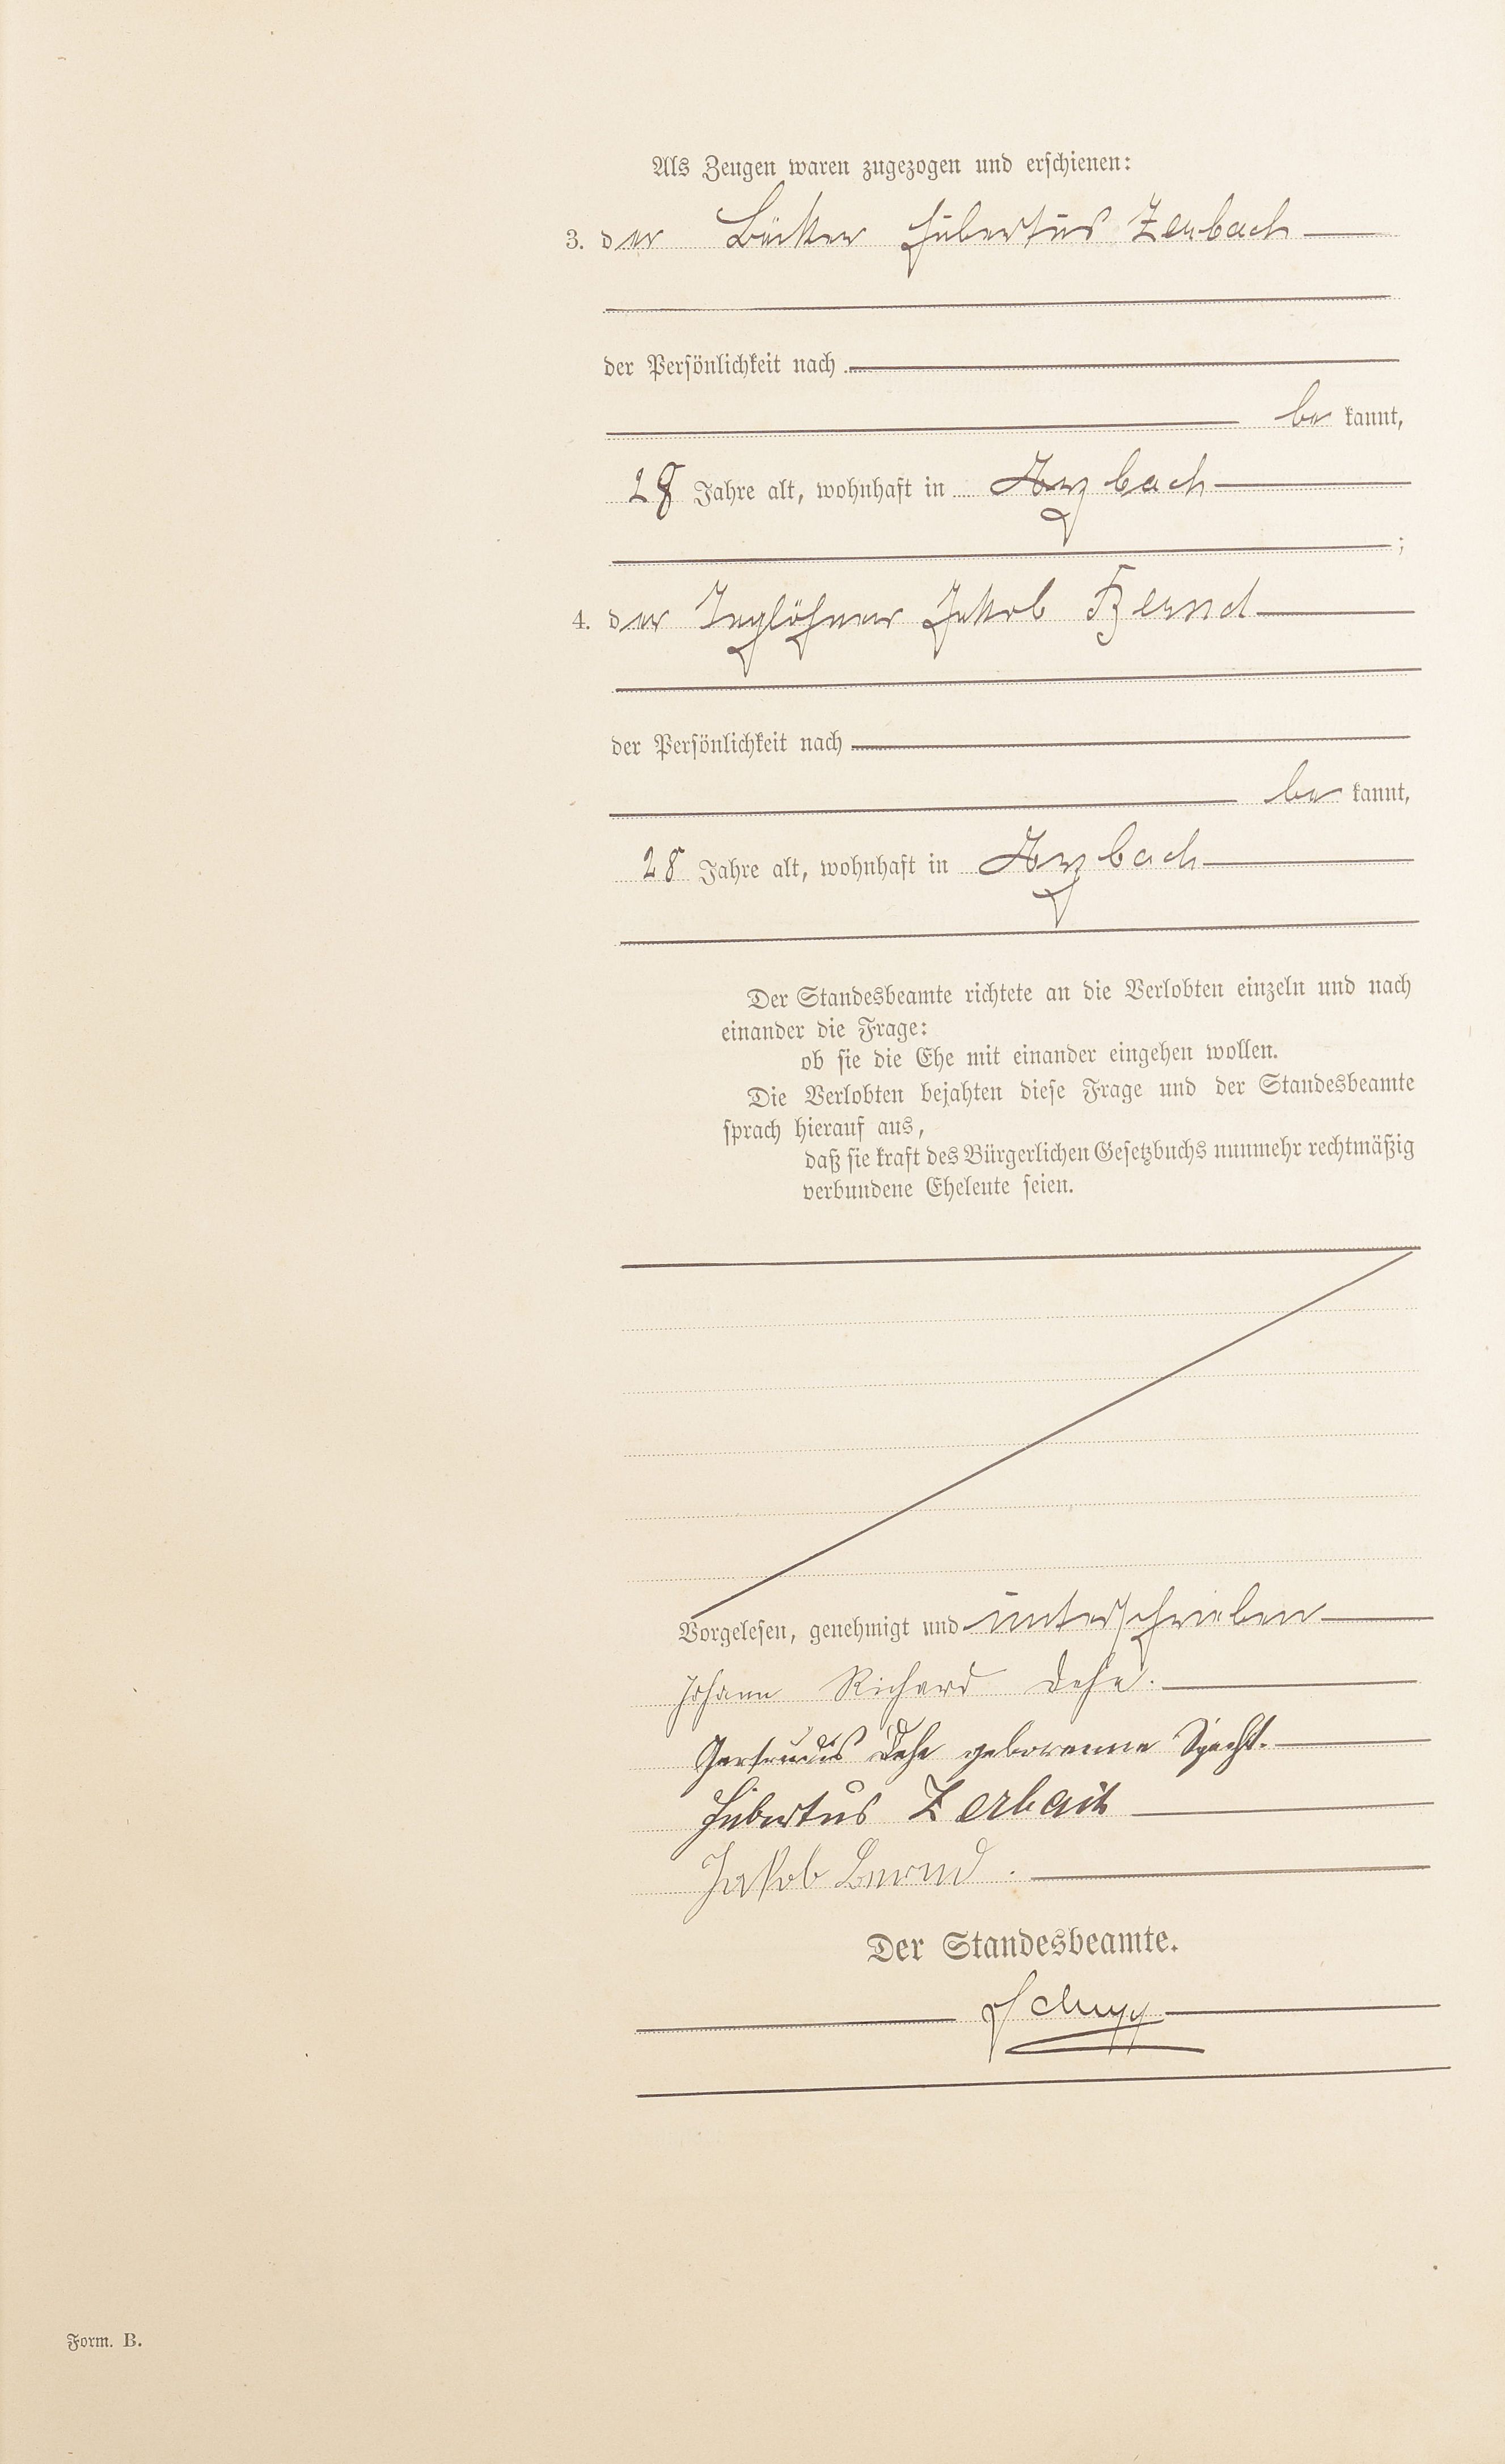 Als Zeugen waren zugezogen und erschienen:
3. der Bäcker Hubertus Zerbach
der Persönlichkeit nach
be kannt,
28 Jahre alt, wohnhaft in Arzbach
;
4. der Taglöhner Jakob Bernd
der Persönlichkeit nach
be kannt,
28 Jahre alt, wohnhaft in Arzbach
Der Standesbeamte richtete an die Verlobten einzeln und nach
einander die Frage:
ob sie die Ehe mit einander eingehen wollen.
Die Verlobten bejahten diese Frage und der Standesbeamte
sprach hierauf aus,
daß sie kraft des Bürgerlichen Gesetzbuchs nunmehr rechtmäßig
verbundene Eheleute seien.
Vorgelesen, genehmigt und unterschrieben
Johann Richard Dehe.
Gertrudis Dehe geborenne Specht.
Hubertus Zerbach
Jakob Bernd.
Der Standesbeamte.
Schupp
Form. B.